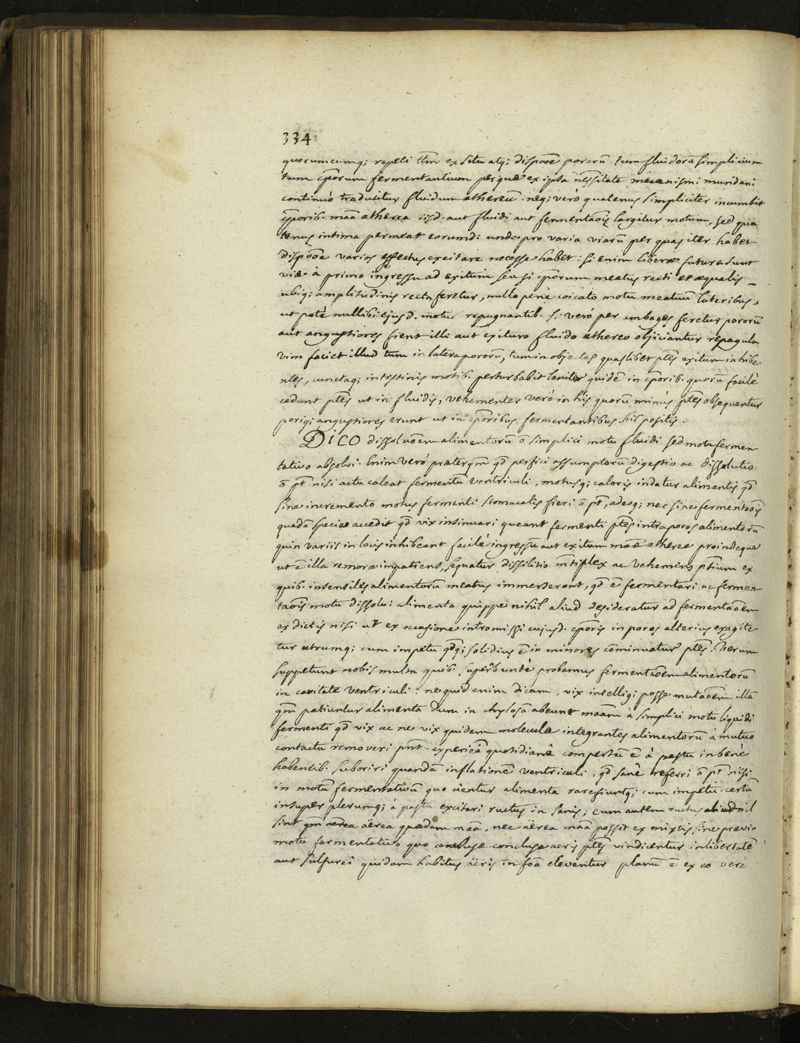 334
quorumcumq; repeti ttm ex situ atq; disposōe pororū tum fluidorū simplicium
tum cp̄orum fermentantium per quæ ex ipsa ncssitate mecanismi mundani
continuò traducitur fluidum æthereū. neq; vero quatenus simpliciter incumbit
cp̄orib. maā ætherea iisd. aut fluidi aut fermentaōis largitur motum, sed qua
tenus intima permeat eorumd: unde pro varia viarū per quas iter habet
disposōe varios effectus excitare necesse habet: si enim liberæ futuræ sunt
viæ à primo ingressu ad exitum seu si cp̄orum meatus recti et æqualis
ubiq; amplitudinis recta feretur, nullo penè coicato motu meatuum lateribus,
ut potè nullibi ejusd. motui repugnantib. si vero per ambages feretur pororū
aut angustiores fient illi aut exituro fluido æthereo objiciantur repagula
vim faciet illud tum in latera pororū, tum in objectas quaslibet ptes exitum inhibe
ntes, cunctaq; intestinis motib. perturbabit leniter quidē in cp̄orib. quorū facilè
cedunt ptes ut in fluidis, vehementer verò in his quorū minus ptes obsequentur
poriq; angustiores erunt ut in cp̄oribus fermentantibus. his positis.
Dico dissoluōem alimentorū ō simplici motu fluidi sed motu fermen
tativo absolvi. Enim verò præterqm̄ qd̄ perfici assumptorū digestio ac dissolutio
ō pt̄ nisi actu caleat fermentū ventriculi, motusq; caloris indatur alimentis qd̄
sine incremento motus fermenti stomacalis fieri ō pt̄, adeoq; nec sine fermentaōis
quadā specie accedit qd̄ vix insinuari queant fermenti ptes intra poros alimentorū
quin variis in locis inhibeant facilè ingressū aut exitum maæ æthereæ proindeque
ut ē illa remoræ impatiens, sequatur dissilitio mtiplex ac vehemens ptium ex
quib. insensiles alimentorū meatus immerserant, qd̄ ē fermentari ac fermen-
taōis motu dissolvi alimenta quippe nihil aliud desideratur ad fermentaōem
ex dictis nisi ut ex occasione intromissi cujusd. cp̄oris in poros alterius exagite
tur utrumq; cum impetu qdq; solidius ē in minores cominuatur ptes. Verum
suppetunt nobis multa quib. superabundè probamus fermentaōem alimentorū
in cavitate ventriculi: ne quid enim dicam, vix intelligi posse mutaōem illā
qm̄ patiuntur alimenta dum in chylosā abeunt maām à simplici motu liquidi
fermenti qd̄ vix ac ne vix quidem moleculæ integrantes alimentorū à mutuo
contactu removeri pnt. experiēā quotidianā compertū ē à pastu in bene
habentib. suboriri quandā inflationē ventriculi, qd̄ sanè referri ō pt̄ nisi
in motum fermentativū quo cientur alimenta rarefiuntq; cum impetu certa
insuper plerumq; à pastu excitari ructus in sanis; cum autem ructus aliud nil
sint qm̄ aerea quædam maā, nec aerea maā possit ex mixtis sine prævio
motu fermentativo quo conclusæ aeris ptes vindicentur in libertatē
aut sulfurei quidam halitus aëris in foā eleventur planū ē ex eo verè